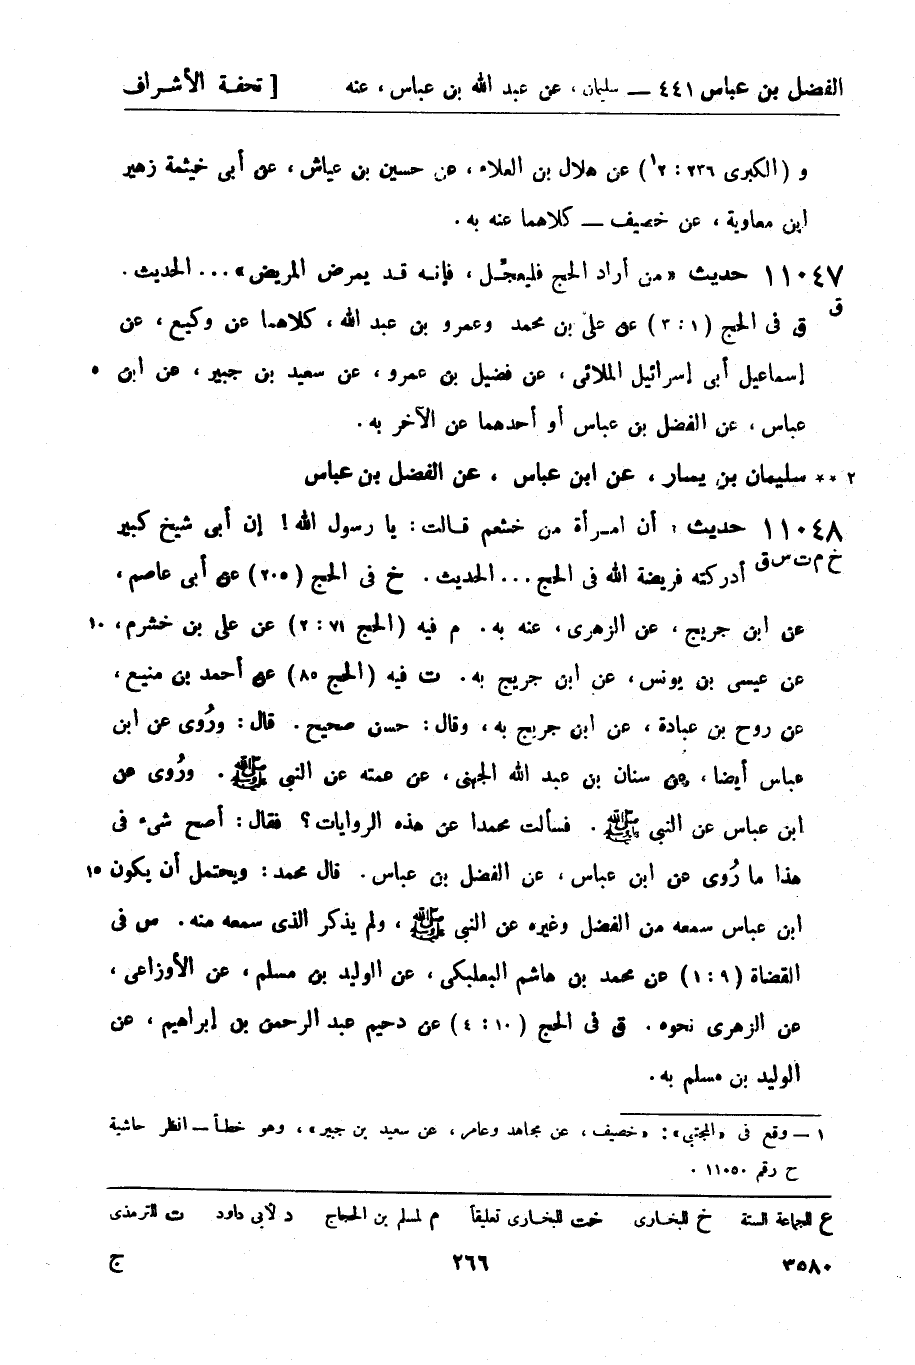 الفضل بن عباس ٤٤١ — سليمان ، عن عبد الله بن عباس ، عنه [ تحفة الأشراف
و ( الكبرى ٢٣٦ : ٢١ ) عن هلال بن العلاء ، عن حسين بن عياش ، عن أبى خيثمة زهير
ابن معاوية ، عن خصيف — كلاهما عنه به .
١١٠٤٧ حديث « من أراد الحج فليعجّل ، فإنه قد يمرض المريض » ... الحديث .
ق
ق فى الحج ( ١ : ٣ ) عن علىّ بن محمد وعمرو بن عبد الله ، كلاهما عن وكيع ، عن
إسماعيل أبى إسرائيل الملائى ، عن فضيل بن عمرو ، عن سعيد بن جبير ، عن ابن ٥
عباس ، عن الفضل بن عباس أو أحدهما عن الآخر به .
٢ ** سليمان بن يسار ، عن ابن عباس ، عن الفضل بن عباس
١١٠٤٨ حديث : أن امرأة من خثعم قالت : يا رسول الله ! إن أبى شيخ كبير
خ م ت س ق أدركته فريضة الله فى الحج ... الحديث . خ فى الحج ( ٢٠٥ ) عن أبى عاصم ،
عن ابن جريج ، عن الزهرى ، عنه به . م فيه ( الحج ٧١ : ٢ ) عن على بن خشرم ، ١٠
عن عيسى بن يونس ، عن ابن جريج به . ت فيه ( الحج ٨٥ ) عن أحمد بن منيع ،
عن روح بن عبادة ، عن ابن جريج به ، وقال : حسن صحيح . قال : ورُوى عن ابن
عباس أيضا ، عن سنان بن عبد الله الجهنى ، عن عمته عن النبى ﷺ . ورُوى عن
ابن عباس عن النبى ﷺ . فسألت محمدا عن هذه الروايات ؟ فقال : أصح شىء فى
هذا ما رُوى عن ابن عباس ، عن الفضل بن عباس . قال محمد : ويحتمل أن يكون ١٥
ابن عباس سمعه من الفضل وغيره عن النبى ﷺ ، ولم يذكر الذى سمعه منه . س فى
القضاة ( ٩ : ١ ) عن محمد بن هاشم البعلبكى ، عن الوليد بن مسلم ، عن الأوزاعى ،
عن الزهرى نحوه . ق فى الحج ( ١٠ : ٤ ) عن دحيم عبد الرحمن بن إبراهيم ، عن
الوليد بن مسلم به .
١ — وقع فى « المجتبى » : « خصيف ، عن مجاهد وعامر ، عن سعيد بن جبير » ، وهو خطأ — انظر حاشية
ح رقم ١١٠٥٠ .
ع للجماعة الستة خ للبخارى خت للبخارى تعليقاً م لمسلم بن الحجاج د لأبى داود ت للترمذى
٣٥٨٠ ٢٦٦ ج